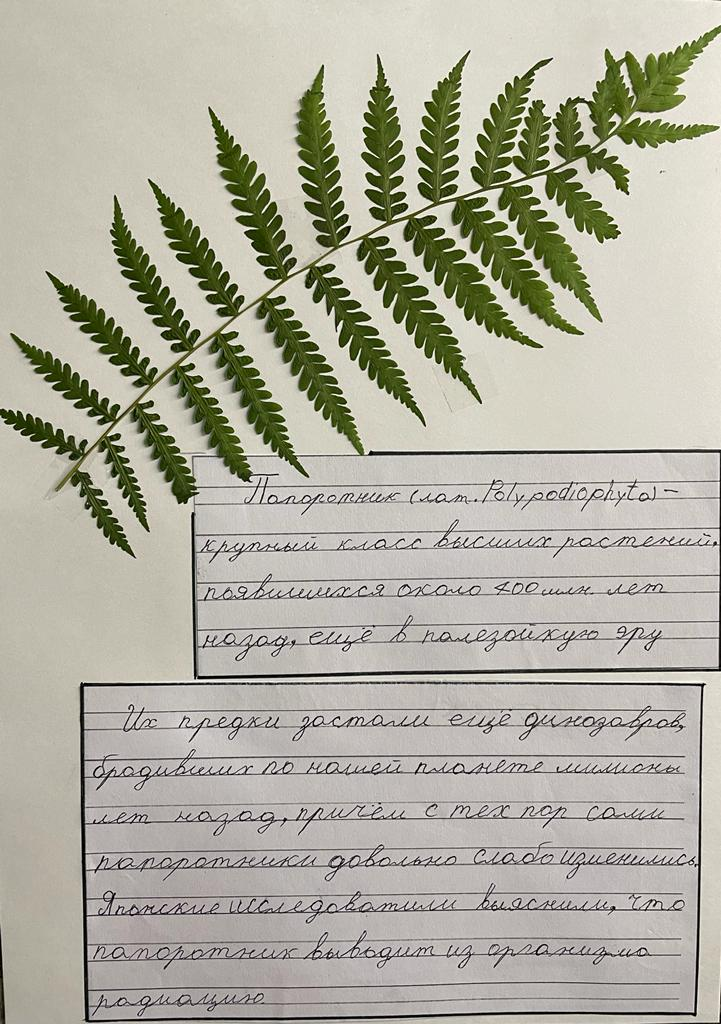 Папоротник (лат. Polypodiophyta) –
крупный класс высших растений.
появившихся около 400 млн. лет
назад, ещё в палезойкую эру
Их предки застали ещё динозавров,
бродивших по нашей планете милионы
лет назад, причём с тех пор сами
папоротники довольно слабо изменились.
Японские исследоватили выяснили, что
папоротник выводит из организма
радиацию